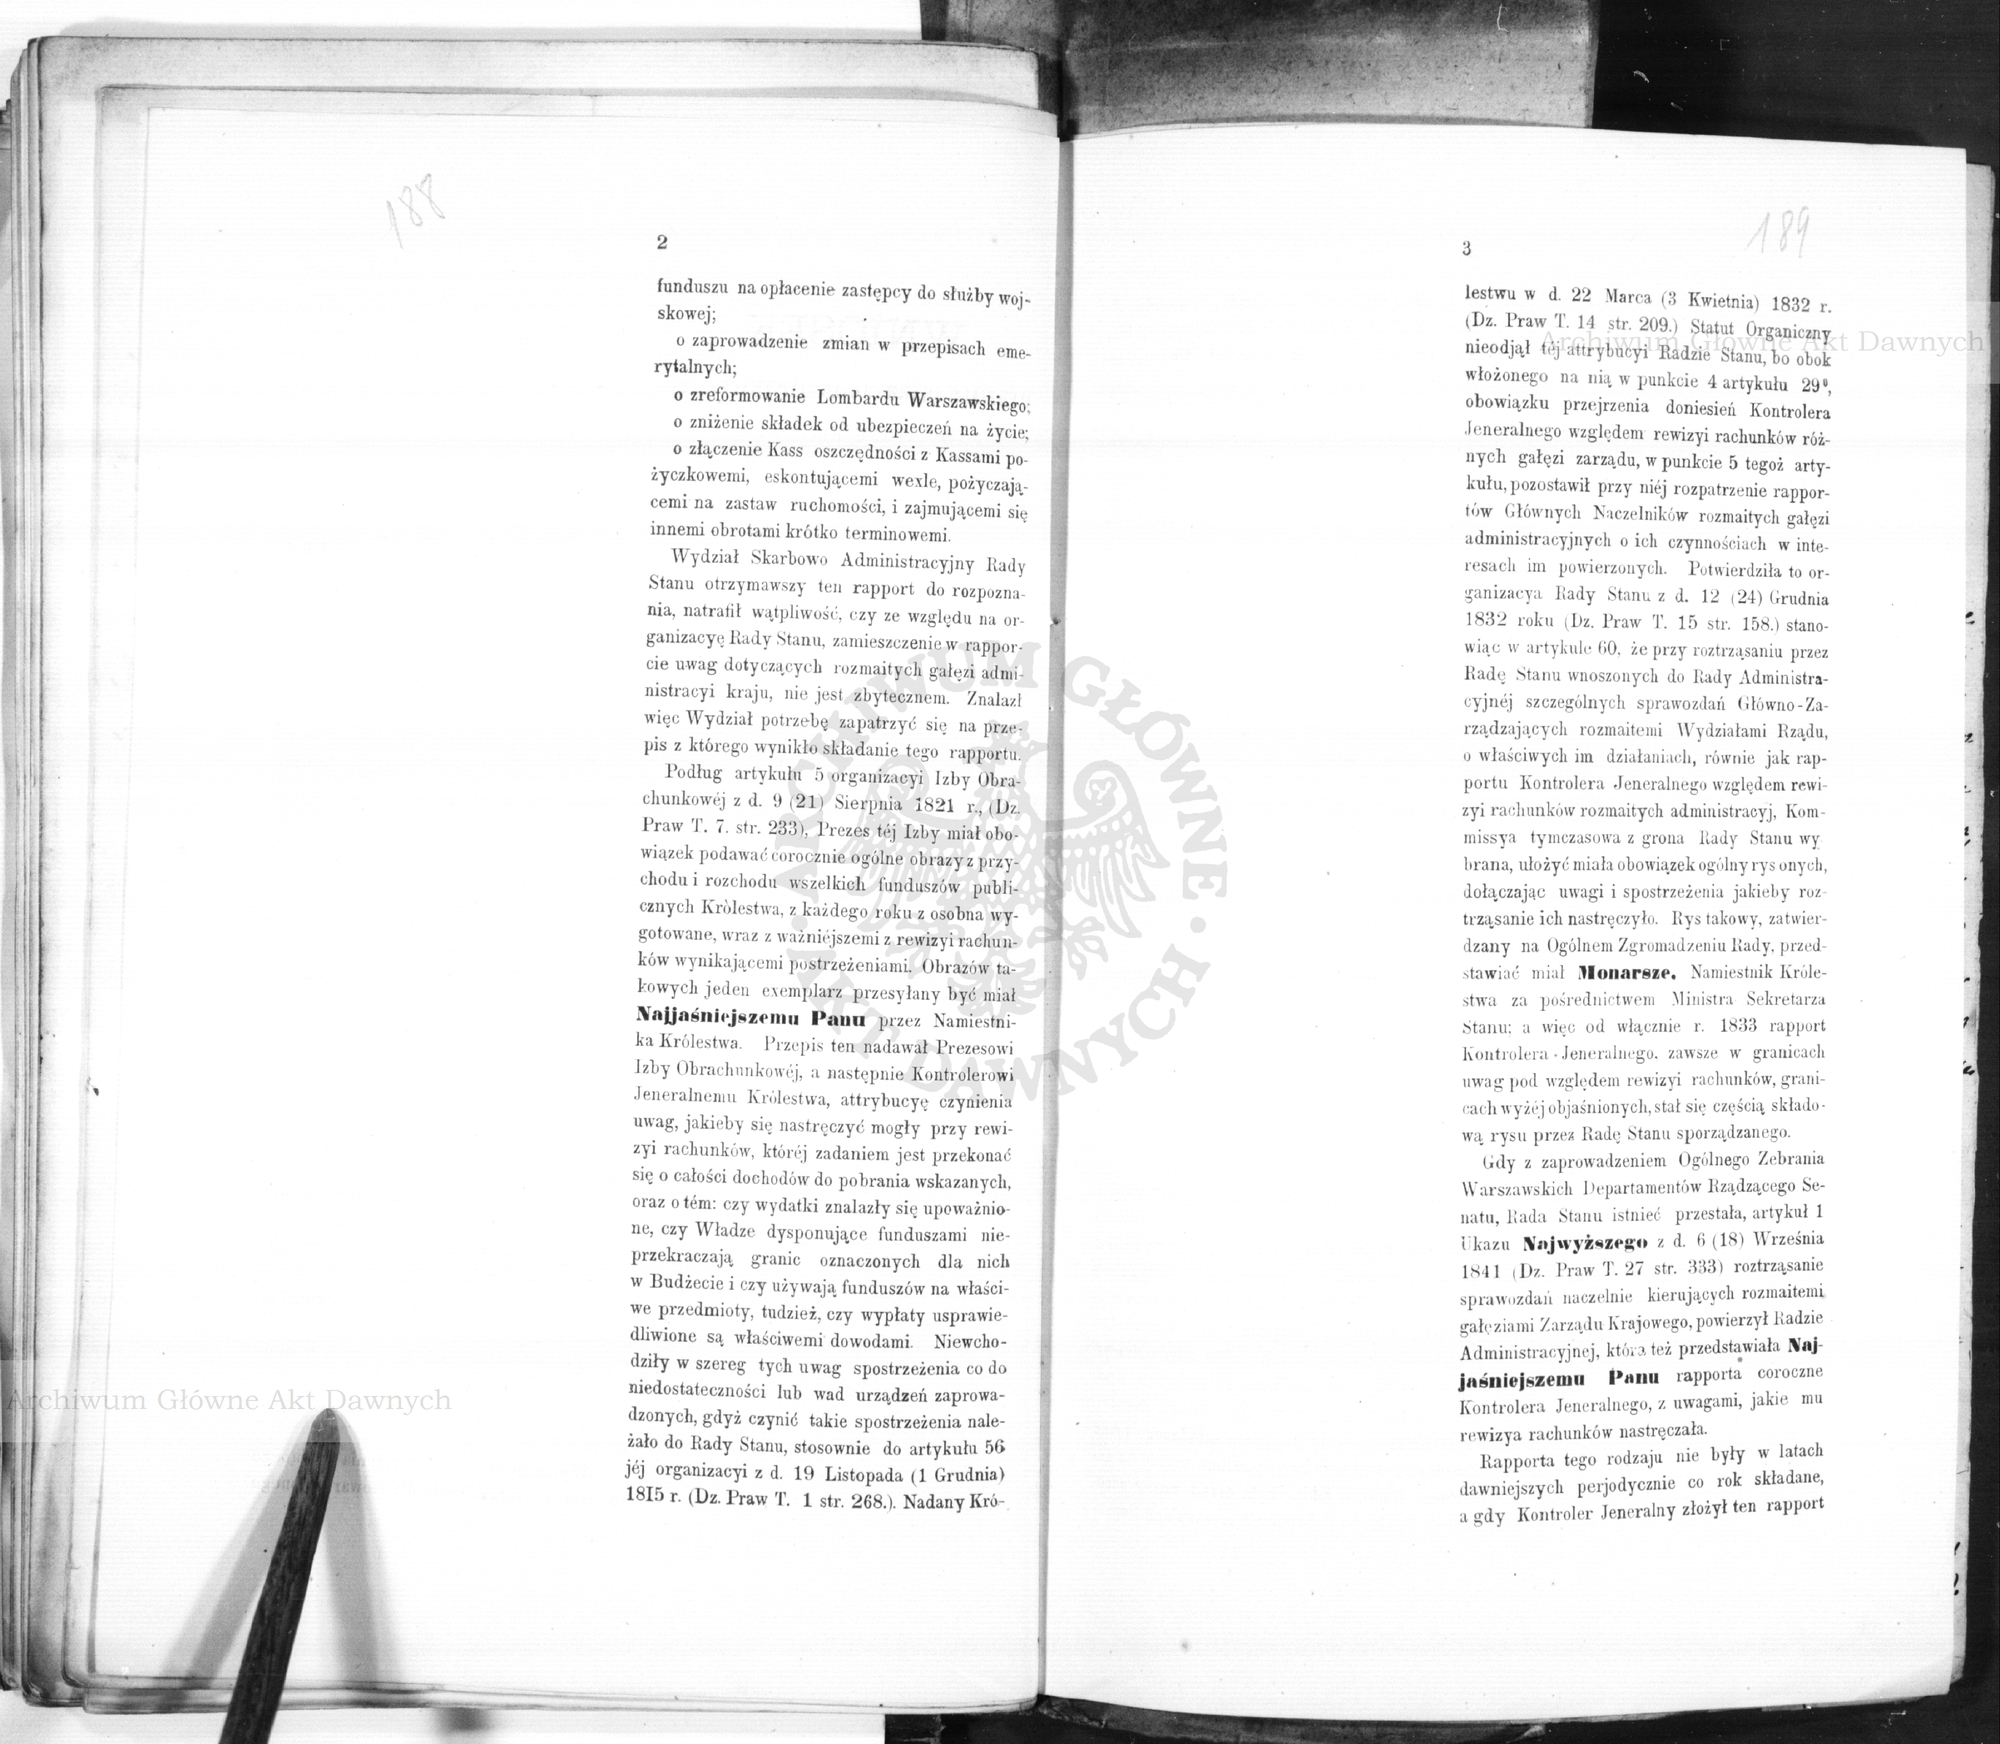 188
2
funduszu na opłacenie zastępcy do służby woj-
skowej;
o zaprowadzenie zmian w przepisach eme-
rytalnych;
o zreformowanie Lombardu Warszawskiego;
o zniżenie składek od ubezpieczeń na życie;
o złączenie Kass oszczędności z Kassami po-
życzkowemi, eskontującemi wexle, pożyczają-
cemi na zastaw ruchomości, i zajmującemi się
innemi obrotami krótko terminowemi.
Wydział Skarbowo Administracyjny Rady
Stanu otrzymawszy ten rapport do rozpozna-
nia, natrafił wątpliwość, czy ze względu na or-
ganizacyę Rady Stanu, zamieszczenie w rappor-
cie uwag dotyczących rozmaitych gałęzi admi-
nistracyi kraju, nie jest zbytecznem. Znalazł
więc Wydział potrzebę zapatrzyć się na prze-
pis z którego wynikło składanie tego rapportu.
Podług artykułu 5 organizacyi Izby Obra-
chunkowéj z d. 9 (21) Sierpnia 1821 r., (Dz.
Praw T. 7. str. 233), Prezes téj Izby miał obo-
wiązek podawać corocznie ogólne obrazy z przy-
chodu i rozchodu wszelkich funduszów publi-
cznych Królestwa, z każdego roku z osobna wy-
gotowane, wraz z ważniéjszemi z rewizyi rachun-
ków wynikającemi postrzeżeniami. Obrazów ta-
kowych jeden exemplarz przesyłany być miał
Najjaśniejszemu Panu przez Namiestni-
ka Królestwa. Przepis ten nadawał Prezesowi
Izby Obrachunkowéj, a następnie Kontrolerowi
Jeneralnemu Królestwa, attrybucyę czynienia
uwag, jakieby się nastręczyć mogły przy rewi-
zyi rachunków, któréj zadaniem jest przekonać
się o całości dochodów do pobrania wskazanych,
oraz o tém: czy wydatki znalazły się upoważnio-
ne, czy Władze dysponujące funduszami nie-
przekraczają granic oznaczonych dla nich
w Budżecie i czy używają funduszów na właści-
we przedmioty, tudzież, czy wypłaty usprawie-
dliwione są właściwemi dowodami. Niewcho-
dziły w szereg tych uwag spostrzeżenia co do
niedostateczności lub wad urządzeń zaprowa-
dzonych, gdyż czynić takie spostrzeżenia nale-
żało do Rady Stanu, stosownie do artykułu 56
jéj organizacyi z d. 19 Listopada (1 Grudnia)
1815 r. (Dz. Praw T. 1 str. 268.). Nadany Kró-
189
3
lestwu w d. 22 Marca (3 Kwietnia) 1832 r.
(Dz. Praw T. 14 str. 209.) Statut Organiczny
nieodjął téj attrybucyi Radzie Stanu, bo obok
włożonego na nią w punkcie 4 artykułu 29⁰,
obowiązku przejrzenia doniesień Kontrolera
Jeneralnego względem rewizyi rachunków róż-
nych gałęzi zarządu, w punkcie 5 tegoż arty-
kułu, pozostawił przy niéj rozpatrzenie rappor-
tów Głównych Naczelników rozmaitych gałęzi
administracyjnych o ich czynnościach w inte-
resach im powierzonych. Potwierdziła to or-
ganizacya Rady Stanu z d. 12 (24) Grudnia
1832 roku (Dz. Praw T. 15 str. 158.) stano-
wiąc w artykule 60, że przy roztrząsaniu przez
Radę Stanu wnoszonych do Rady Administra-
cyjnéj szczególnych sprawozdań Główno-Za-
rządzających rozmaitemi Wydziałami Rządu,
o właściwych im działaniach, równie jak rap-
portu Kontrolera Jeneralnego względem rewi-
zyi rachunków rozmaitych administracyj, Kom-
missya tymczasowa z grona Rady Stanu wy
brana, ułożyć miała obowiązek ogólny rys onych,
dołączając uwagi i spostrzeżenia jakieby roz-
trząsanie ich nastręczyło. Rys takowy, zatwier-
dzany na Ogólnem Zgromadzeniu Rady, przed-
stawiać miał Monarsze, Namiestnik Króle-
stwa za pośrednictwem Ministra Sekretarza
Stanu: a więc od włącznie r. 1833 rapport
Kontrolera-Jeneralnego, zawsze w granicach
uwag pod względem rewizyi rachunków, grani-
cach wyżéj objaśnionych, stał się częścią składo-
wą rysu przez Radę Stanu sporządzanego.
Gdy z zaprowadzeniem Ogólnego Zebrania
Warszawskich Departamentów Rządzącego Se-
natu, Rada Stanu istnieć przestała, artykuł 1
Ukazu Najwyższego z d. 6 (18) Września
1841 (Dz. Praw T. 27 str. 333) roztrząsanie
sprawozdań naczelnie kierujących rozmaitemi
gałęziami Zarządu Krajowego, powierzył Radzie
Administracyjnej, która też przedstawiała Naj-
jaśniejszemu Panu rapporta coroczne
Kontrolera Jeneralnego, z uwagami, jakie mu
rewizya rachunków nastręczała.
Rapporta tego rodzaju nie były w latach
dawniejszych perjodycznie co rok składane,
a gdy Kontroler Jeneralny złożył ten rapport
Archiwum Główne Akt Dawnych
Archiwum Główne Akt Dawnych
ARCHIWUM GŁÓWNE · AKT DAWNYCH · H